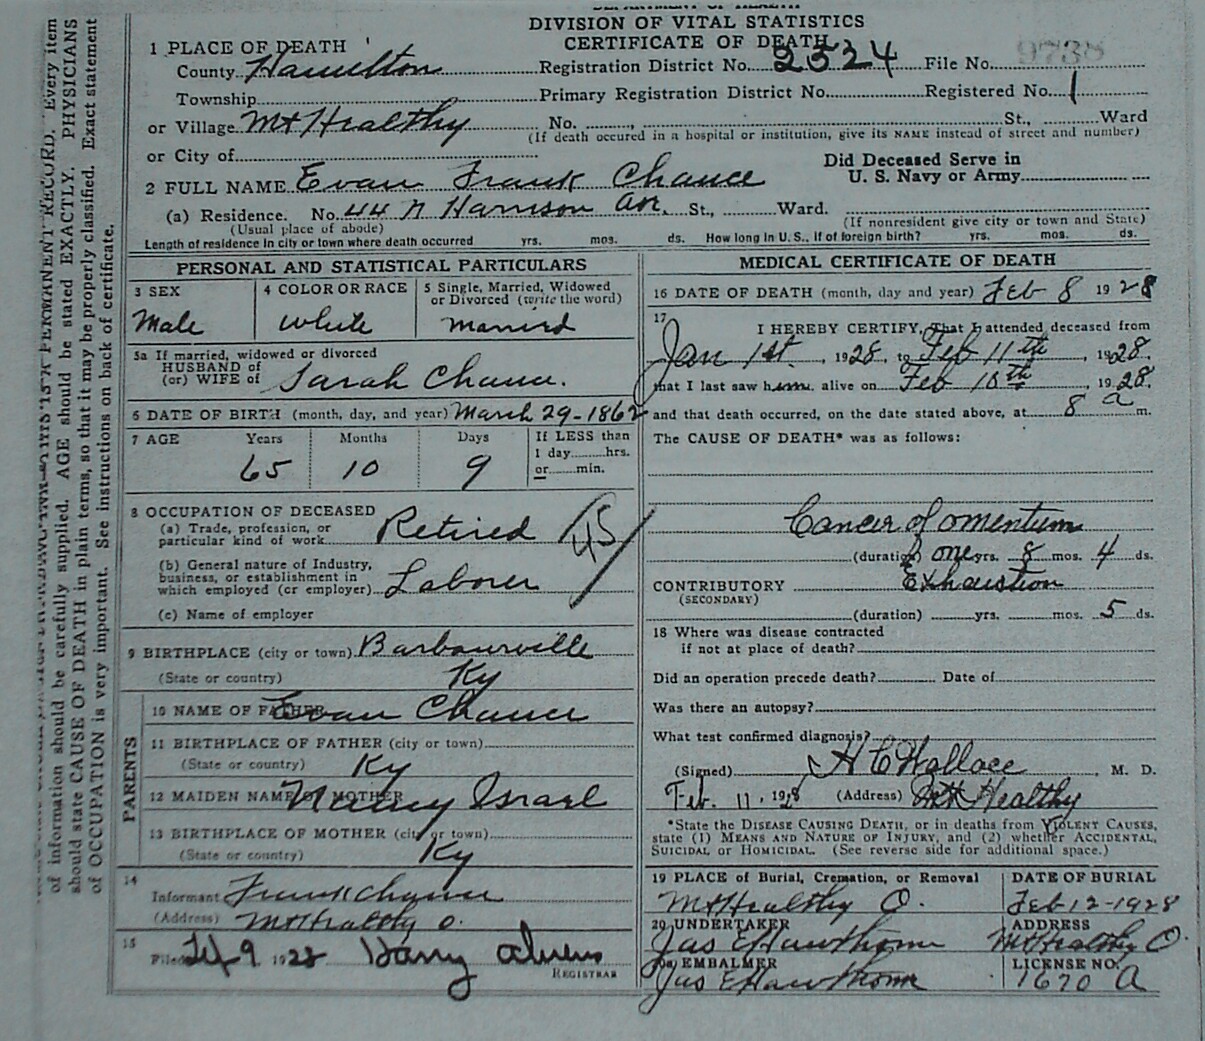 DEPARTMENT OF HEALTH
DIVISION OF VITAL STATISTICS
CERTIFICATE OF DEATH
1 PLACE OF DEATH
County Hamilton Registration District No. 2524 File No. 9738
Township Primary Registration District No. Registered No. 1
or Village Mt Healthy No. St., Ward
(If death occured in a hospital or institution, give its NAME instead of street and number)
or City of
Did Deceased Serve in
U. S. Navy or Army
2 FULL NAME Evan Frank Chance
(a) Residence. No. 44 N Harrison Ave. St., Ward.
(Usual place of abode) (If nonresident give city or town and State)
Length of residence in city or town where death occurred yrs. mos. ds. How long in U. S., if of foreign birth? yrs. mos. ds.
PERSONAL AND STATISTICAL PARTICULARS
3 SEX
Male
4 COLOR OR RACE
White
5 Single, Married, Widowed
or Divorced (write the word)
Married
5a If married, widowed or divorced
HUSBAND of
(or) WIFE of Sarah Chance.
6 DATE OF BIRTH (month, day, and year) March 29-1862
7 AGE Years Months Days If LESS than
1 day hrs.
or min.
65 10 9
8 OCCUPATION OF DECEASED
(a) Trade, profession, or
particular kind of work Retired
(b) General nature of Industry,
business, or establishment in
which employed (or employer) Laborer
(c) Name of employer
9 BIRTHPLACE (city or town) Barbourville
(State or country) Ky
PARENTS
10 NAME OF FATHER Evan Chance
11 BIRTHPLACE OF FATHER (city or town)
(State or country) Ky
12 MAIDEN NAME OF MOTHER Nancy Israel
13 BIRTHPLACE OF MOTHER (city or town)
(State or country) Ky
14
Informant Frank Chance
(Address) Mt Healthy O.
15
Filed Feb 9 1928 Harry Ahrens
REGISTRAR
MEDICAL CERTIFICATE OF DEATH
16 DATE OF DEATH (month, day and year) Feb 8 1928
17
I HEREBY CERTIFY, That I attended deceased from
Jan 1st, 1928, to Feb 11th, 1928.
that I last saw him alive on Feb 10th, 1928.
and that death occurred, on the date stated above, at 8 a m.
The CAUSE OF DEATH* was as follows:
Cancer of omentum
(duration) one yrs. 8 mos. 4 ds.
CONTRIBUTORY Exhaustion
(SECONDARY)
(duration) yrs. mos. 5 ds.
18 Where was disease contracted
if not at place of death?
Did an operation precede death? Date of
Was there an autopsy?
What test confirmed diagnosis?
(Signed) H C Wallace, M. D.
Feb. 11, 1928 (Address) Mt Healthy
*State the DISEASE CAUSING DEATH, or in deaths from VIOLENT CAUSES,
state (1) MEANS AND NATURE OF INJURY, and (2) whether ACCIDENTAL,
SUICIDAL or HOMICIDAL. (See reverse side for additional space.)
19 PLACE of Burial, Cremation, or Removal
Mt Healthy O.
DATE OF BURIAL
Feb 12-1928
20 UNDERTAKER
Jas E Hawthorn
ADDRESS
Mt Healthy O.
EMBALMER
Jas E Hawthorn
LICENSE NO.
1670 A
PERMANENT RECORD. Every item
of information should be carefully supplied. AGE should be stated EXACTLY. PHYSICIANS
should state CAUSE OF DEATH in plain terms, so that it may be properly classified. Exact statement
of OCCUPATION is very important. See instructions on back of certificate.